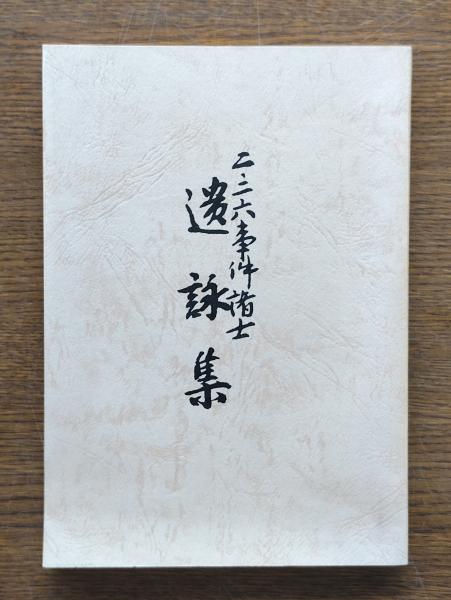 二・二六事件諸士
遺詠集